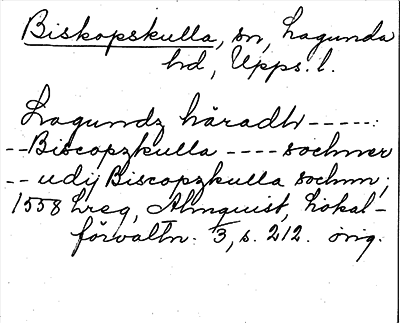 Biskopskulla, sn, Lagunda
hd, Upps. l.
Lagundz häradh -----:
--Biscopzkulla ---- sochner
-- udij Biscopzkulla sochnn;
1558 Lreg, Almquist, Lokal-
förvaltn. 3, s. 212. orig.